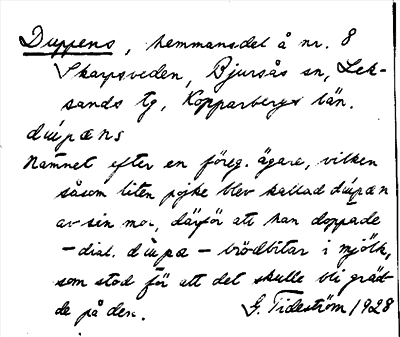 Duppens, hemmansdel å nr. 8
Skarpsveden, Bjursås sn, Lek-
sands tg, Kopparbergs län.
dúpæns
Namnet efter en föreg. ägare, vilken
såsom liten pojke blev kallad dúpæn
av sin mor, därför att han doppade
– dial. dùpæ – brödbitar i mjölk,
som stod för att det skulle bli gräd-
de på den. G. Tideström 1928